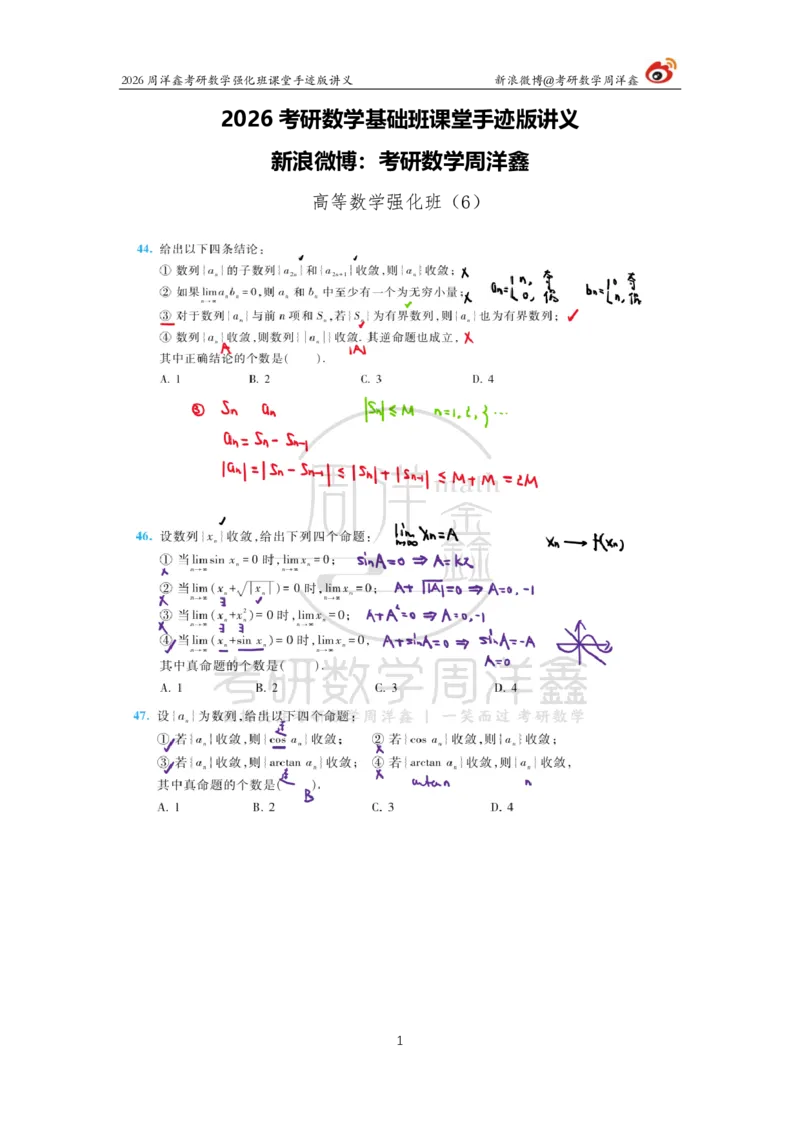 2026周洋鑫考研数学强化班课堂手迹版讲义 新浪微博@考研数学周洋鑫
2026考研数学基础班课堂手迹版讲义
新浪微博：考研数学周洋鑫
高等数学强化班（6）
44. 给出以下四条结论：
① 数列{aₙ}的子数列{a₂ₙ}和{a₂ₙ₊₁}收敛,则{aₙ}收敛; ✗
② 如果lim aₙbₙ=0,则aₙ和bₙ中至少有一个为无穷小量; ✗ aₙ={n, 奇 0, 偶 bₙ={0 奇 n, 偶
n→∞
③ 对于数列{aₙ}与前n项和Sₙ,若{Sₙ}为有界数列,则{aₙ}也为有界数列; ✓
④ 数列{aₙ}收敛,则数列{|aₙ|}收敛.其逆命题也成立, ✗
A |A|
其中正确结论的个数是( ).
A. 1 B. 2 C. 3 D. 4
③ Sₙ aₙ |Sₙ|≤M n=1,2,3…
aₙ=Sₙ-Sₙ₋₁
|aₙ|=|Sₙ-Sₙ₋₁|≤|Sₙ|+|Sₙ₋₁|≤M+M=2M
周洋鑫 math
46. 设数列{xₙ}收敛,给出下列四个命题: lim xₙ=A xₙ→f(xₙ)
n→∞
① 当lim sin xₙ=0时,lim xₙ=0; sinA=0⇒A=kπ
n→∞ n→∞
② 当lim(xₙ+√|xₙ|)=0时,lim xₙ=0; A+√|A|=0⇒A=0,-1
n→∞ n→∞
③ 当lim(xₙ+xₙ²)=0时,lim xₙ=0; A+A²=0⇒A=0,-1
n→∞ n→∞
④ 当lim(xₙ+sin xₙ)=0时,lim xₙ=0, A+sinA=0⇒sinA=-A
n→∞ n→∞
A=0
其中真命题的个数是( ).
A. 1 B. 2 C. 3 D. 4
考研数学周洋鑫
47. 设{aₙ}为数列,给出以下四个命题:
学周洋鑫 | 一笑而过 考研数学
连
① 若{aₙ}收敛,则{cos aₙ}收敛; ② 若{cos aₙ}收敛,则{aₙ}收敛;
③ 若{aₙ}收敛,则{arctan aₙ}收敛; ④ 若{arctan aₙ}收敛,则{aₙ}收敛,
连 arctan n
其中真命题的个数是( ).
B
A. 1 B. 2 C. 3 D. 4
1